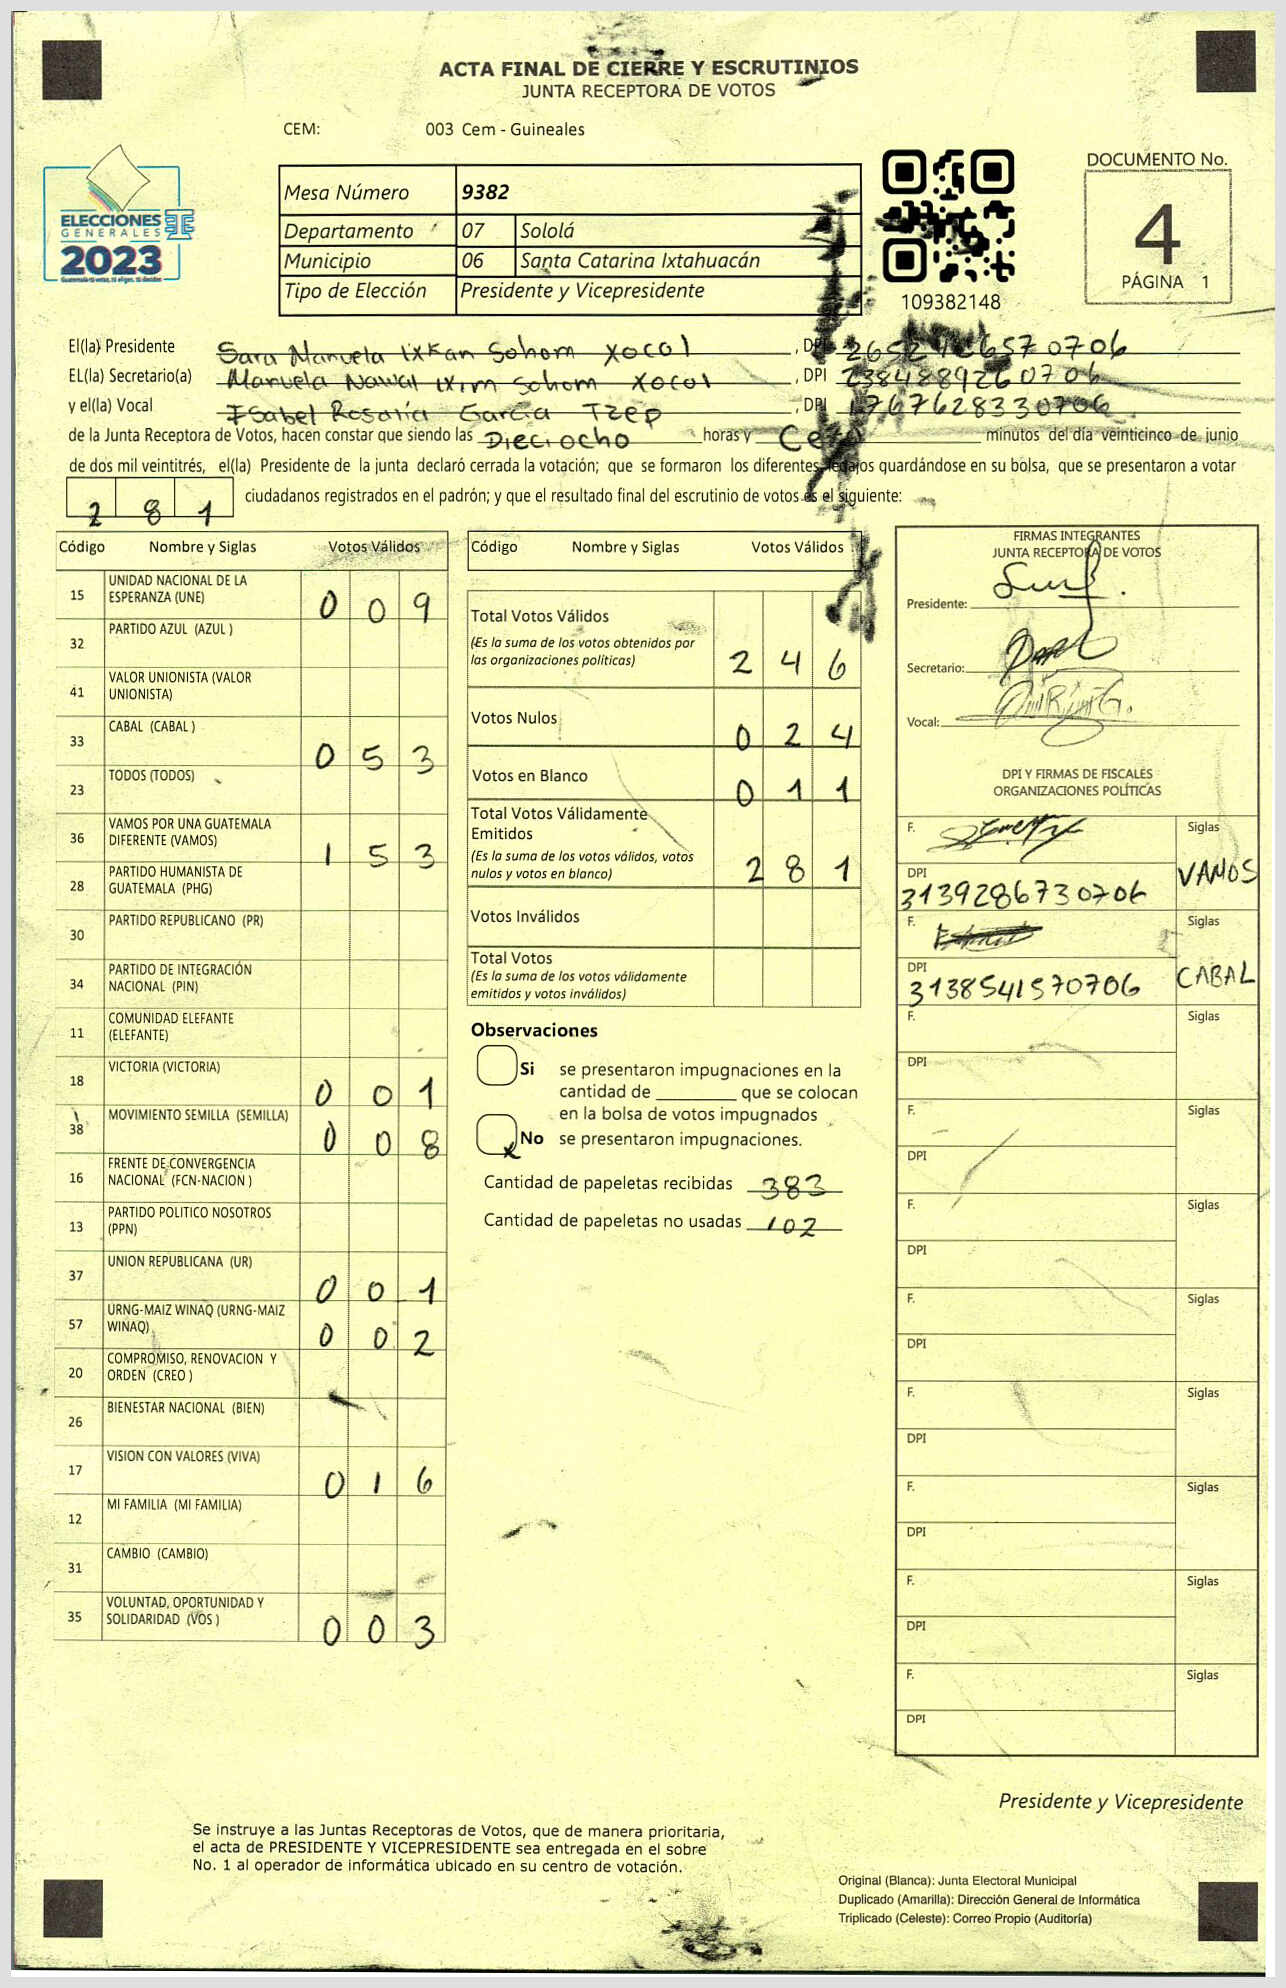 ACTA FINAL DE CIERRE Y ESCRUTINIOS
JUNTA RECEPTORA DE VOTOS
CEM: 003 Cem - Guineales
ELECCIONES
GENERALES
2023
Mesa Número 9382
Departamento 07 Sololá
Municipio 06 Santa Catarina Ixtahuacán
Tipo de Elección Presidente y Vicepresidente
109382148
DOCUMENTO No.
4
PÁGINA 1
El(la) Presidente Sara Manuela Ixkan Sohom Xocol, DPI
EL(la) Secretario(a) Manuela Nawal Ixim Sohom Xocol, DPI 2384889260706
y el(la) Vocal Isabel Rosaria Garcia Tzep, DPI 1767628330706
de la Junta Receptora de Votos, hacen constar que siendo las Dieciocho horas y Cero minutos del día veinticinco de junio
de dos mil veintitrés, el(la) Presidente de la junta declaró cerrada la votación; que se formaron los diferentes legajos guardándose en su bolsa, que se presentaron a votar
281 ciudadanos registrados en el padrón; y que el resultado final del escrutinio de votos es el siguiente:
Código Nombre y Siglas Votos Válidos
15 UNIDAD NACIONAL DE LA ESPERANZA (UNE) 0 0 9
32 PARTIDO AZUL (AZUL )
41 VALOR UNIONISTA (VALOR UNIONISTA)
33 CABAL (CABAL ) 0 5 3
23 TODOS (TODOS)
36 VAMOS POR UNA GUATEMALA DIFERENTE (VAMOS) 1 5 3
28 PARTIDO HUMANISTA DE GUATEMALA (PHG)
30 PARTIDO REPUBLICANO (PR)
34 PARTIDO DE INTEGRACIÓN NACIONAL (PIN)
11 COMUNIDAD ELEFANTE (ELEFANTE)
18 VICTORIA (VICTORIA) 0 0 1
38 MOVIMIENTO SEMILLA (SEMILLA) 0 0 8
16 FRENTE DE CONVERGENCIA NACIONAL (FCN-NACION )
13 PARTIDO POLITICO NOSOTROS (PPN)
37 UNION REPUBLICANA (UR) 0 0 1
57 URNG-MAIZ WINAQ (URNG-MAIZ WINAQ) 0 0 2
20 COMPROMISO, RENOVACION Y ORDEN (CREO )
26 BIENESTAR NACIONAL (BIEN)
17 VISION CON VALORES (VIVA) 0 1 6
12 MI FAMILIA (MI FAMILIA)
31 CAMBIO (CAMBIO)
35 VOLUNTAD, OPORTUNIDAD Y SOLIDARIDAD (VOS ) 0 0 3
Código Nombre y Siglas Votos Válidos
Total Votos Válidos
(Es la suma de los votos obtenidos por
las organizaciones políticas) 2 4 6
Votos Nulos 0 2 4
Votos en Blanco 0 1 1
Total Votos Válidamente
Emitidos
(Es la suma de los votos válidos, votos
nulos y votos en blanco) 2 8 1
Votos Inválidos
Total Votos
(Es la suma de los votos válidamente
emitidos y votos inválidos)
Observaciones
Si se presentaron impugnaciones en la
cantidad de ________ que se colocan
en la bolsa de votos impugnados
x No se presentaron impugnaciones.
Cantidad de papeletas recibidas 383
Cantidad de papeletas no usadas 102
FIRMAS INTEGRANTES
JUNTA RECEPTORA DE VOTOS
Presidente:
Secretario:
Vocal:
DPI Y FIRMAS DE FISCALES
ORGANIZACIONES POLÍTICAS
F. Siglas
DPI 3139286730706 VAMOS
F. Siglas
DPI 3138541570706 CABAL
F. Siglas
DPI
F. Siglas
DPI
F. Siglas
DPI
F. Siglas
DPI
F. Siglas
DPI
F. Siglas
DPI
F. Siglas
DPI
F. Siglas
DPI
Presidente y Vicepresidente
Se instruye a las Juntas Receptoras de Votos, que de manera prioritaria,
el acta de PRESIDENTE Y VICEPRESIDENTE sea entregada en el sobre
No. 1 al operador de informática ubicado en su centro de votación.
Original (Blanca): Junta Electoral Municipal
Duplicado (Amarilla): Dirección General de Informática
Triplicado (Celeste): Correo Propio (Auditoría)